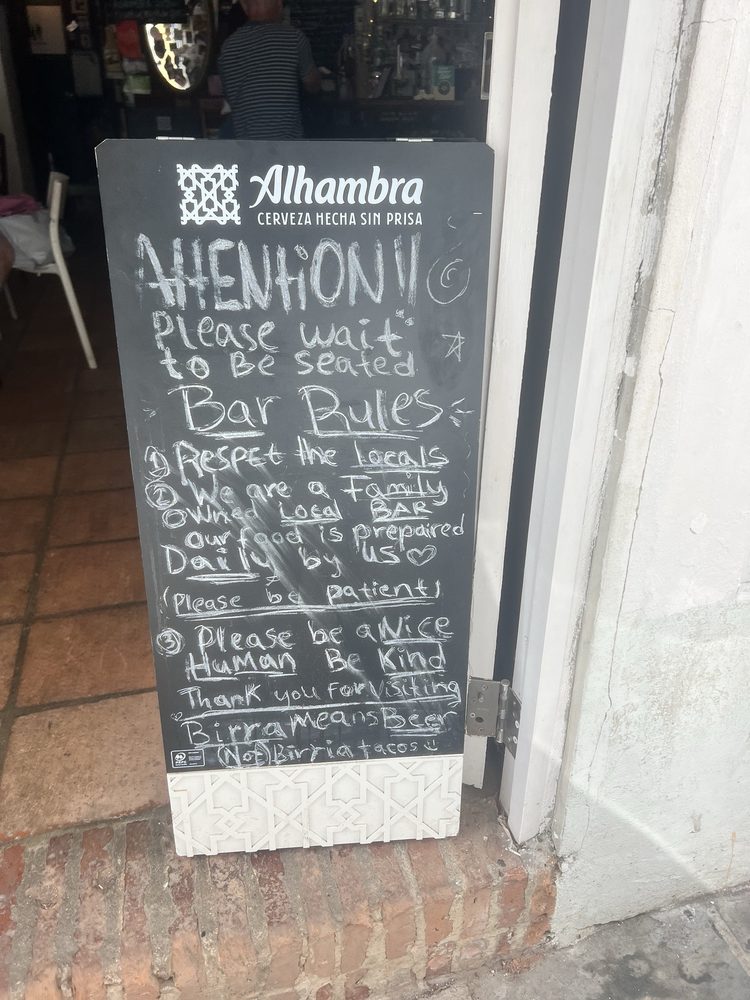 Alhambra
CERVEZA HECHA SIN PRISA
ATTENTiON!!
Please wait
to Be seated
Bar Rules
① RESPEt the Locals
② We are a Family
OWNED Local BAR
our food is prepaired
Daily by us
(Please be patient)
③ Please be a Nice
Human Be Kind
Thank you For Visiting
Birra Means Beer
(Not) Birria tacos